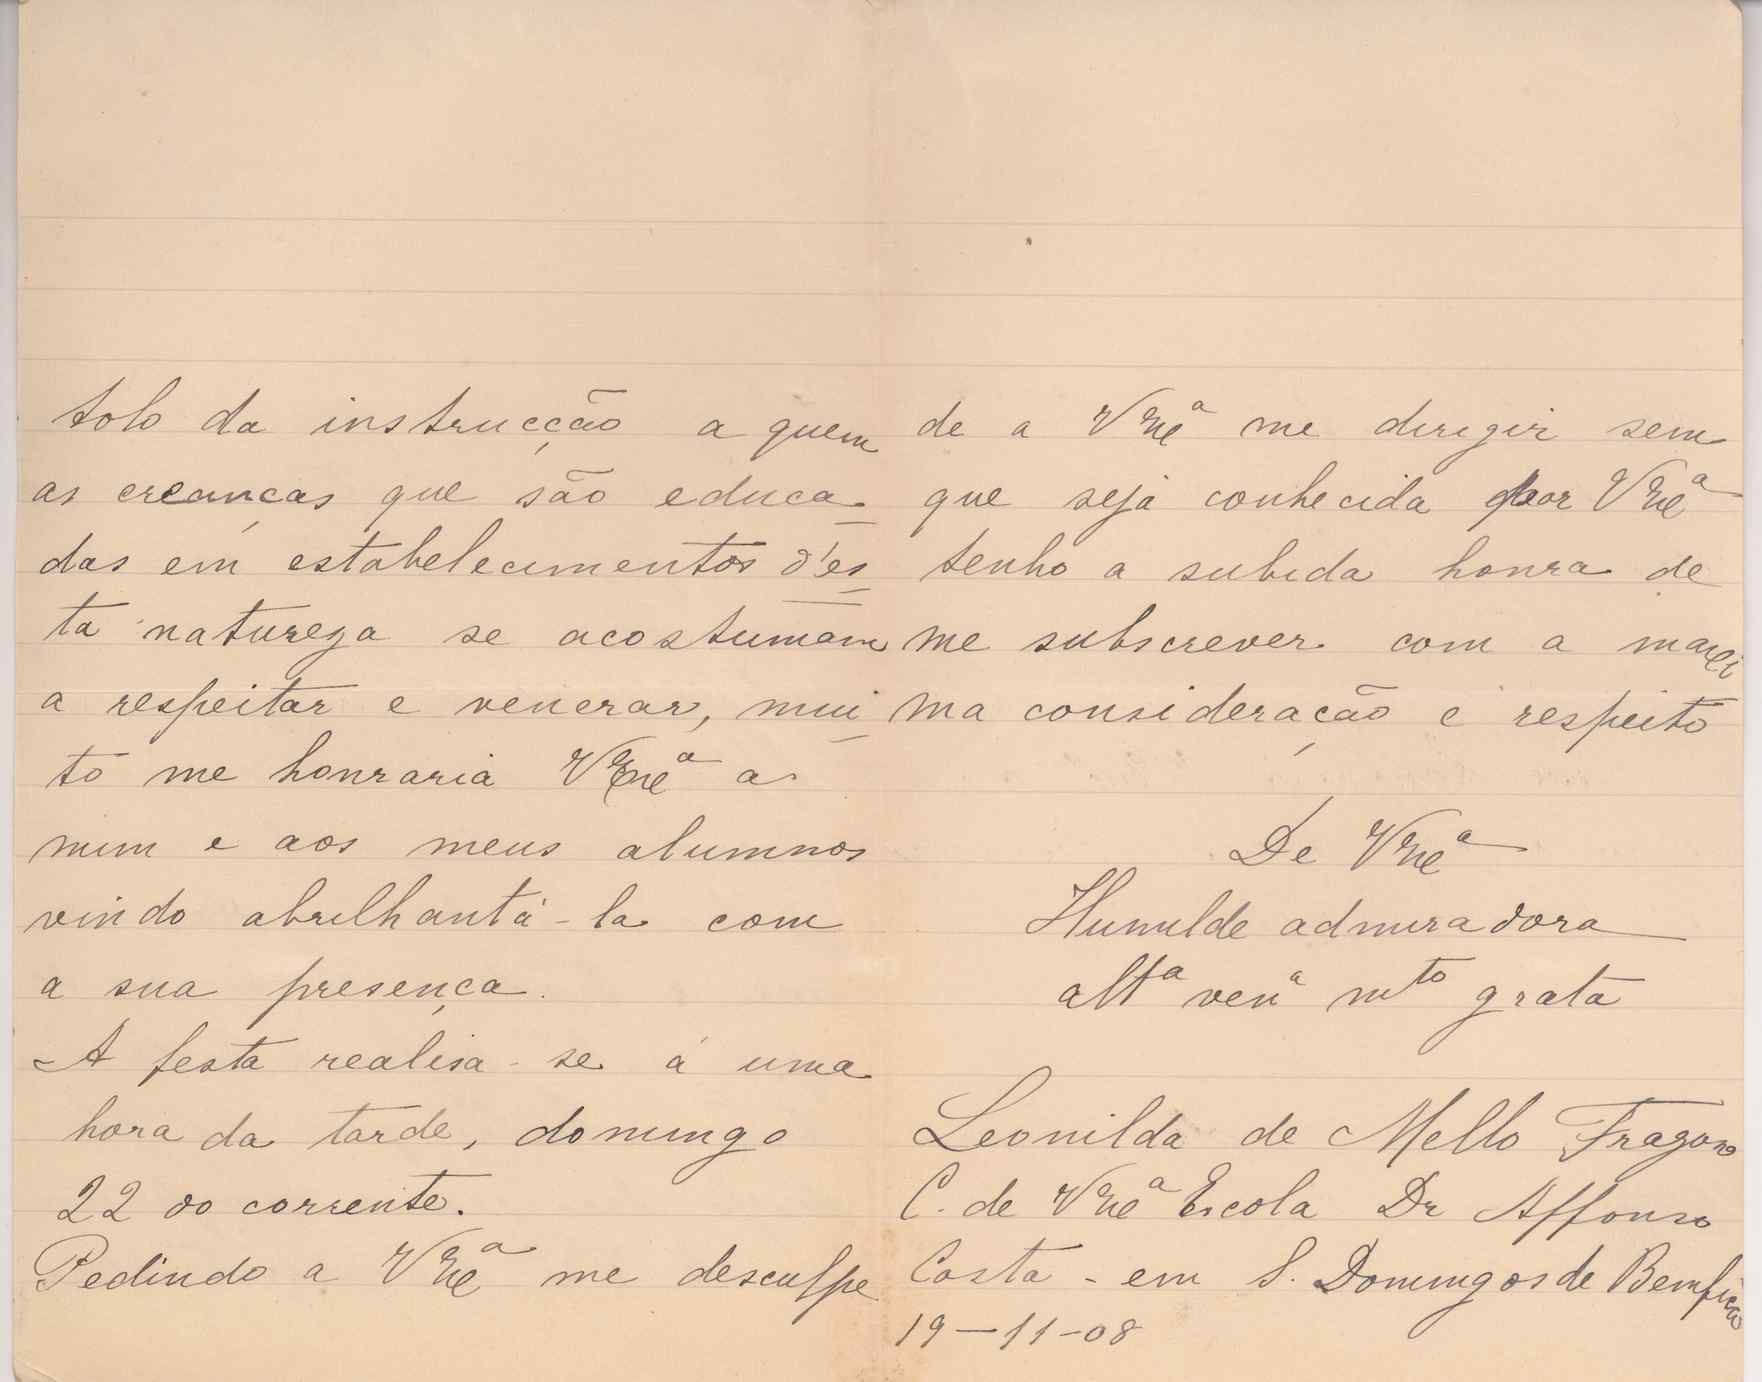 tolo da instrucção a quem
as creanças que são educa
das em estabelecimentos d'es
ta natureza se acostumam
a respeitar e venerar, mui
to me honraria VExcª a
mim e aos meus alumnos
vindo abrilhantá-la com
a sua presença.
A festa realisa-se á uma
hora da tarde, domingo
22 do corrente.
Pedindo a VExcª me desculpe
de a VExcª me dirigir sem
que seja conhecida por VExcª
tenho a subida honra de
me subscrever com a maxi
ma consideração e respeito
De VExcª
Humilde admiradora
altª venª mto grata
Leonilda de Mello Fragoso
C. de VExcª Escola Dr Affonso
Costa - em S. Domingos de Bemfica
19-11-08